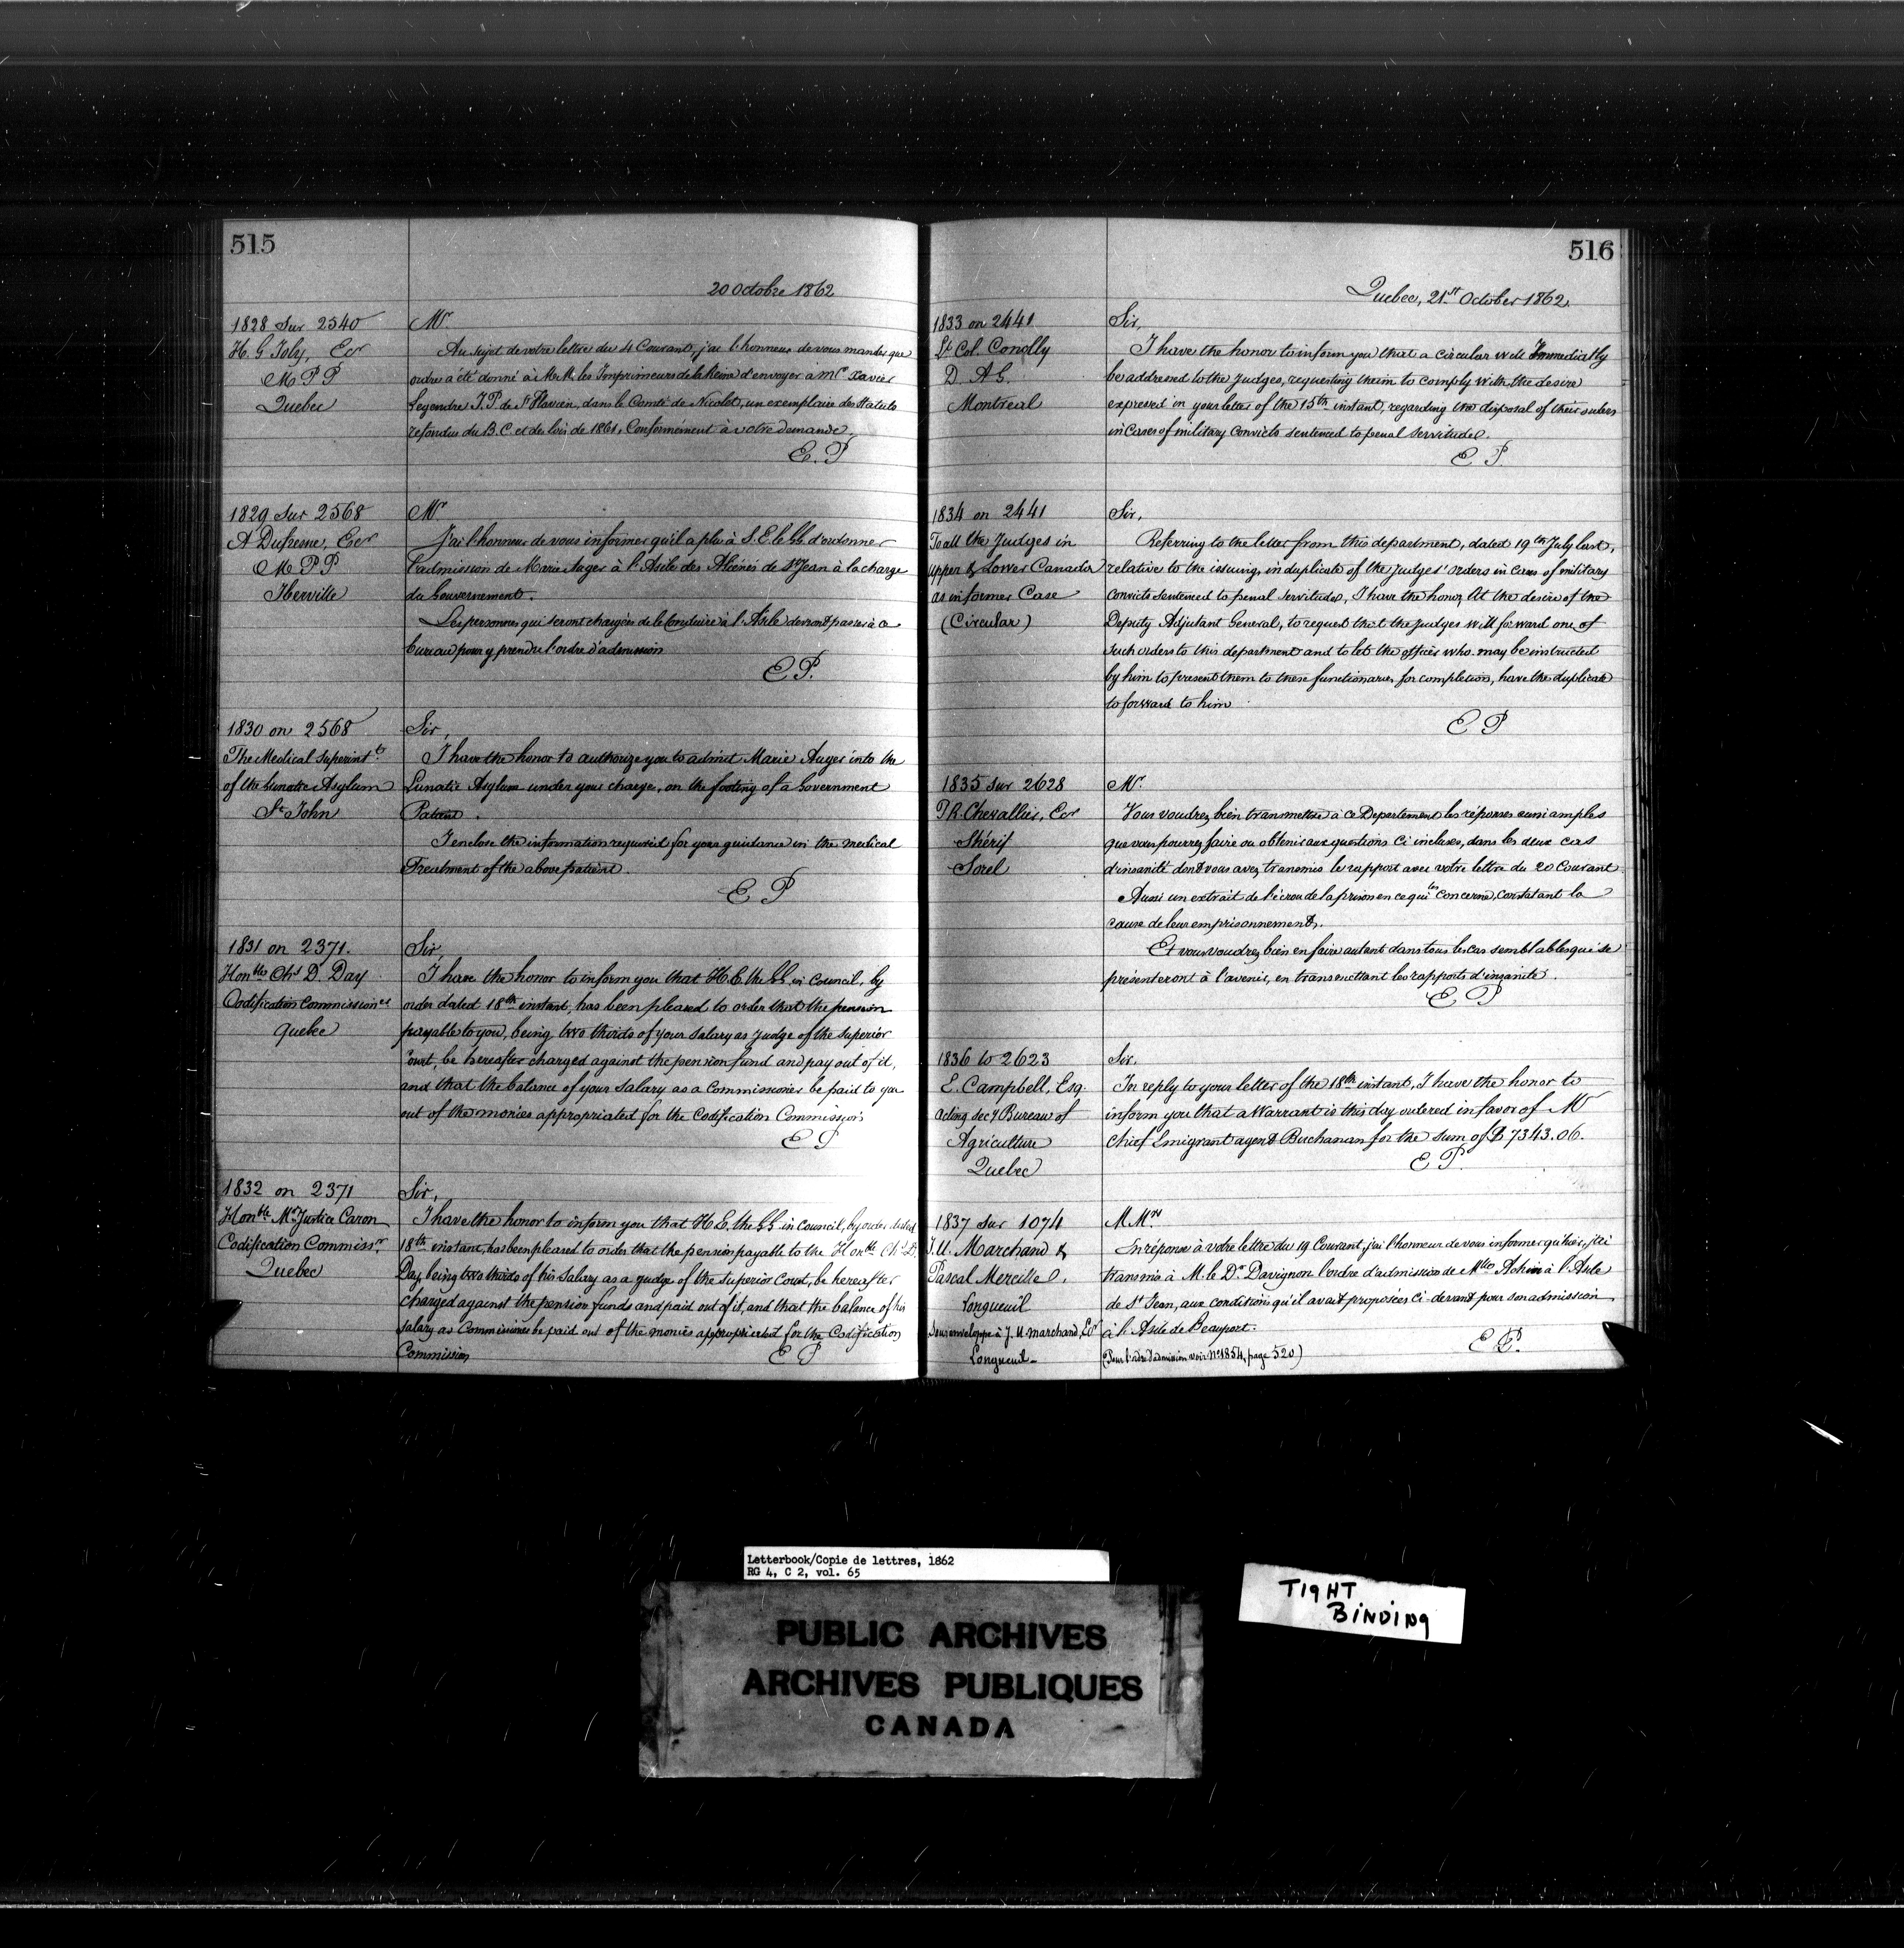 515
20 Octobre 1862
1828 Sur 2540
H. G Joly, Ecr
M P P
Quebec
Mr.
Au sujet de votre lettre du 4 Courant, j'ai l'honneur de vous mander que
ordres a été donné à MrM. les Imprimeurs de la Reine d'envoyer a Mr Xavier
Legendre J.P. de St Flavien, dans le Comté de Nicolet, un exemplaire des Statuts
refondus du B.C. et des lois de 1861, Conformement à votre demande.
E. P
1829 Sur 2568
A Dufresne, Ecr
M P P
Iberville
Mr
J'ai l'honneur de vous informer qu'il a plu à S. E. le GG. d'ordonner
l'admission de Marie Auger à l'Asile des Aliénés de St Jean à la charge
du Gouvernement.
Les personnes qui seront chargées de le Conduire à l'Asile devront passer à ce
bureau pour y prendre l'ordre d'admission
E P.
1830 on 2568
The Medical Superintt
of the Lunatic Asylum
St John
Sir,
I have the honor to authorize you to admit Marie Auger into the
Lunatic Asylum under your charge, on the footing of a Government
Patient.
I enclose the information required for your guidance in the medical
Treatment of the above patient.
E P
1831 on 2371.
Honble Chs D. Day
Codification Commissioner
Quebec
Sir,
I have the honor to inform you that H.E. the GG. in Council, by
order dated 18th instant, has been pleased to order that the pension
payable to you, being two thirds of your Salary as Judge of the Superior
Court, be hereafter charged against the pension fund and pay out of it,
and that the balance of your Salary as a Commissioner be paid to you
out of the monies appropriated for the Codification Commission
E P
1832 on 2371
Honble Mr Justice Caron
Codification Commissr
Quebec
Sir,
I have the honor to inform you that H E. the GG. in Council, by order dated
18th instant, has been pleased to order that the pension payable to the Honble Chs D.
Day, being two thirds of his Salary as a Judge of the Superior Court, be hereafter
charged against the pension funds and paid out of it, and that the balance of his
Salary as Commissioner be paid out of the monies appropriated for the Codification
Commission
E P
516
Quebec, 21st October 1862.
1833 on 2441
Lt Col. Conolly
D. A G.
Montreal
Sir,
I have the honor to inform you that a circular will Immediatly
be addressed to the Judges, requesting them to comply with the desire
expressed in your letter of the 15th instant, regarding the disposal of their orders
in Cases of military Convicts sentenced to penal Servitude.
E P.
1834 on 2441
To all the Judges in
Upper & Lower Canada
as in former Case
(Circular)
Sir,
Referring to the letter from this department, dated 19th July last,
relative to the issuing, in duplicate of the Judges' Orders in Cases of military
Convicts sentenced to penal Servitude, I have the honor, At the desire of the
Deputy Adjutant General, to request that the Judges will forward one of
such orders to this department and to let the officer who may be instructed
by him to present them to these functionaries for completion, have the duplicate
to forward to him
E P
1835 Sur 2628
P. R. Chevallier, Ecr
Shérif
Sorel
Mr.
Vous voudrez bien transmettre à ce Departement les réponses aussi amples
que vous pourrez faire ou obtenir aux questions Ci incluses, dans les deux cas
d'insanité dont vous avez transmis le rapport avec votre lettre du 20 Courant.
Aussi un extrait de l'écrou de la prison en ce qui les concerne, constatant la
cause de leur emprisonnement.
Et vous voudrez bien en faire autant dans tous les cas semblables qui se
présenteront à l'avenir, en transmettant les rapports d'insanité.
E P
1836 to 2623
E. Campbell, Esq.
Acting Secy Bureau of
Agriculture
Quebec
Sir,
In reply to your letter of the 18th instant, I have the honor to
inform you that a Warrant is this day ordered in favor of Mr
Chief Emigrant agent Buchanan for the sum of $ 7343.06.
E P.
1837 Sur 1074
J. U. Marchand &
Pascal Mercille.
Longueuil
Sous enveloppe à J. U. Marchand, Ecr
Longueuil -
M Mrs
En réponse à votre lettre du 19 Courant, j'ai l'honneur de vous informer qu'hier, j'ai
transmis à M. le Dr Davignon l'ordre d'admission de Mlle Achin à l'Asile
de St Jean, aux conditions qu'il avait proposées Ci-devant pour son admission
à l'Asile de Beauport.
E P.
(Pour l'ordre d'admission voir No 1854, page 520)
Letterbook/Copie de lettres, 1862
RG 4, C 2, vol. 65
PUBLIC ARCHIVES
ARCHIVES PUBLIQUES
CANADA
TIGHT
BINDING